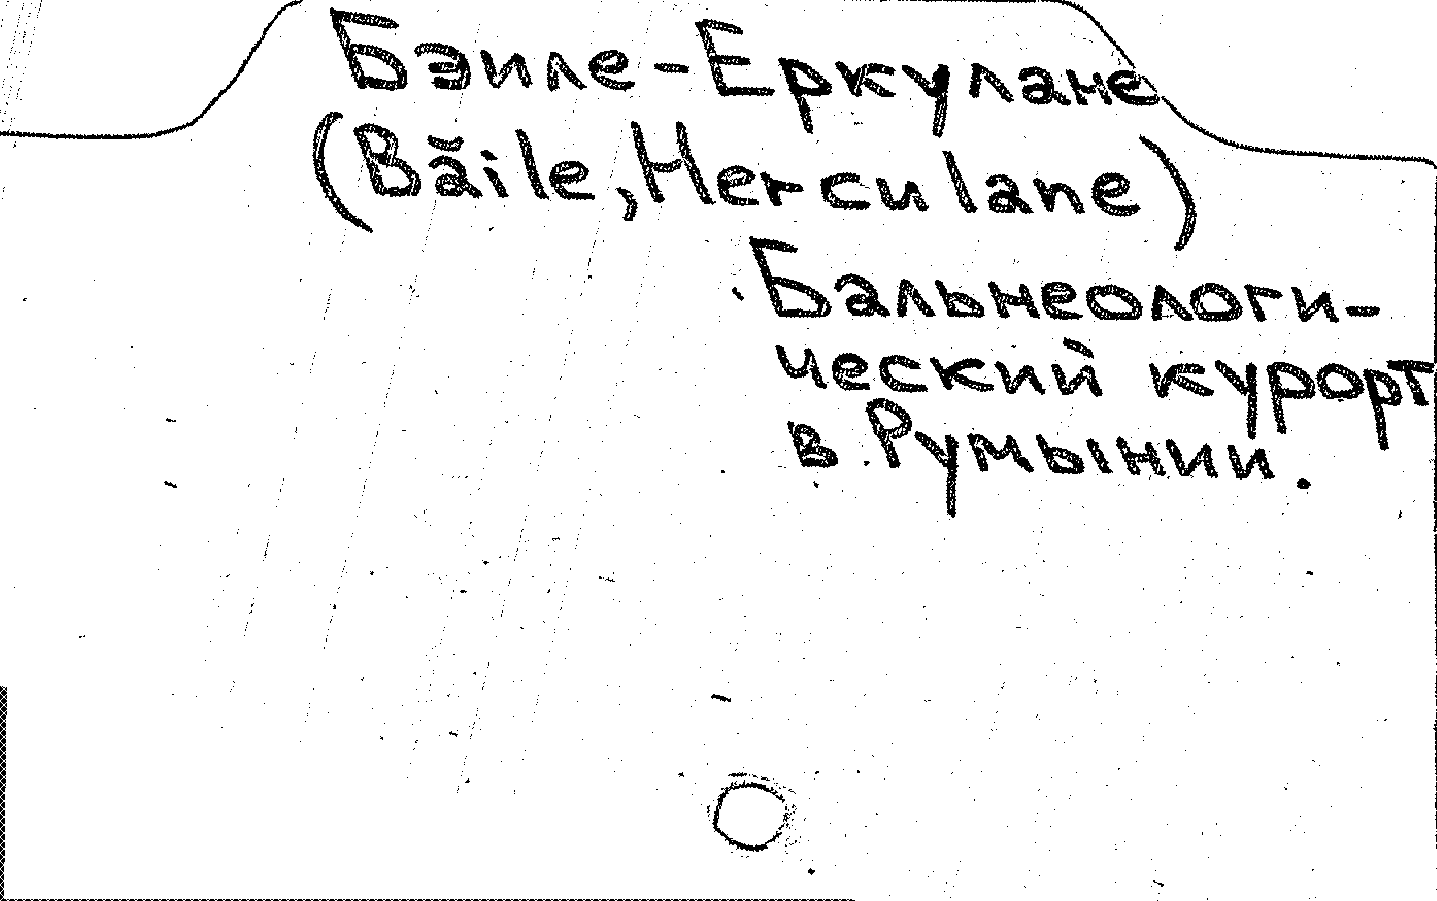 Бэиле-Еркулане
(Băile, Herculane)
Бальнеологи-
ческий курорт
в Румынии.